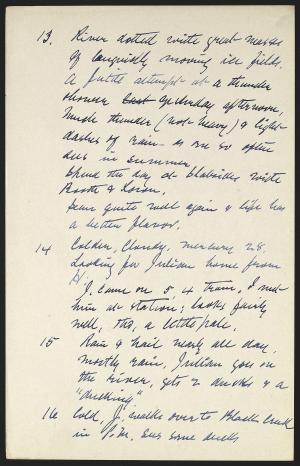 13. River dotted with great masses
of languidly moving ice fields.
A futile attempt at a thunder
shower last yesterday afternoon,
Much thunder (not heavy) & light
dashes of rain - as one so often
sees in summer.
Spend the day at Slabsides with
Booth & Loison.
Am quite well again & life has
a better flavor.
14 Colder, Cloudy, mercury 28.
Looking for Julian home from
H.
J. came on 5.4 train. I met
him at station; looks fairly
well, tho, a little pale.
15 Rain & hail nearly all day,
mostly rain. Julian goes on
the river, gets 2 ducks & a
"duckling"
16 Cold, J. walks over to Black Creek
in P.M. sees some ducks